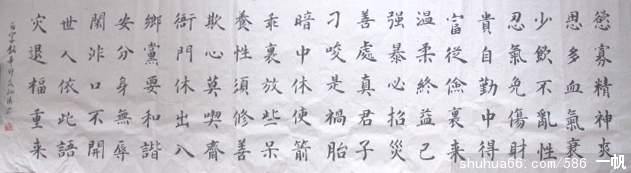 慾寡精神爽
思多血氣衰
少飲不亂性
忍氣免傷財
貴自勤中得
富從儉裏來
温柔終益己
强暴必招災
善處真君子
刁唆是禍胎
暗中休使箭
乖裏放些呆
養性須修善
欺心莫喫齋
衙門休出入
鄉黨要和諧
安分身無辱
閑非口不開
世人依此語
灾退福重来
百字銘辛卯
shuhua66.com/586 一帆